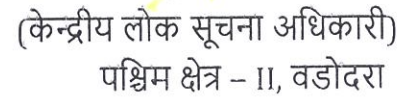 (केन्द्रीय लोक सूचना अधिकारी)
पश्चिम क्षेत्र – II, वडोदरा